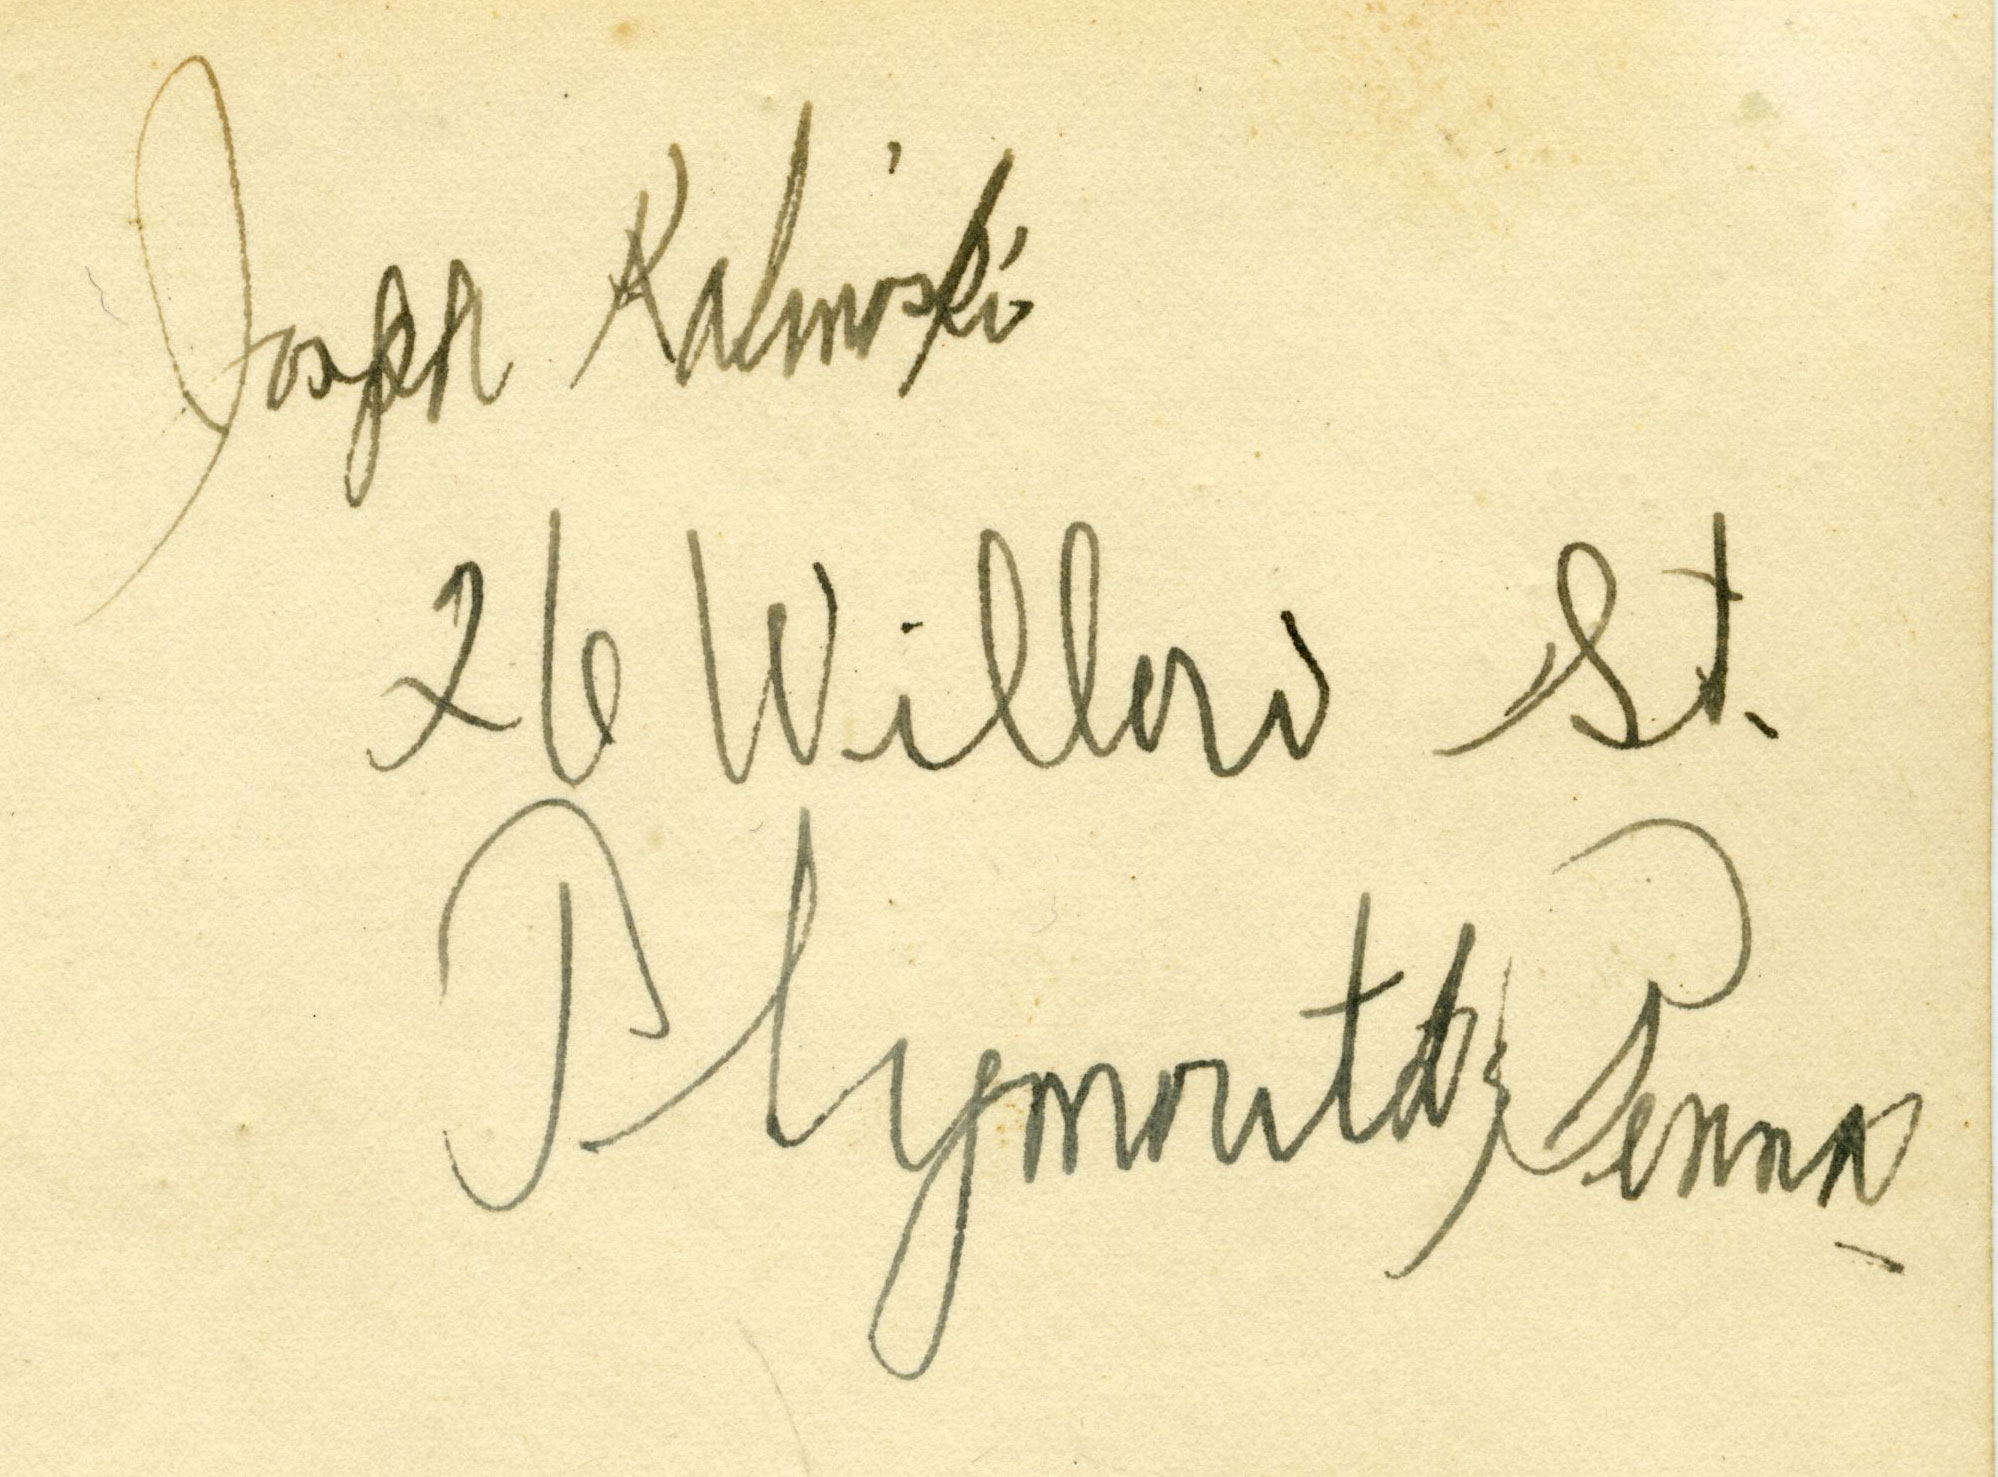 Joseph Kalinoski
26 Willow St.
Plymouth, Penna